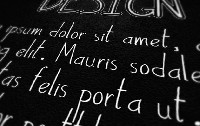 DESIGN
ipsum dolor sit amet,
g elit. Mauris sodale
tas felis porta ut